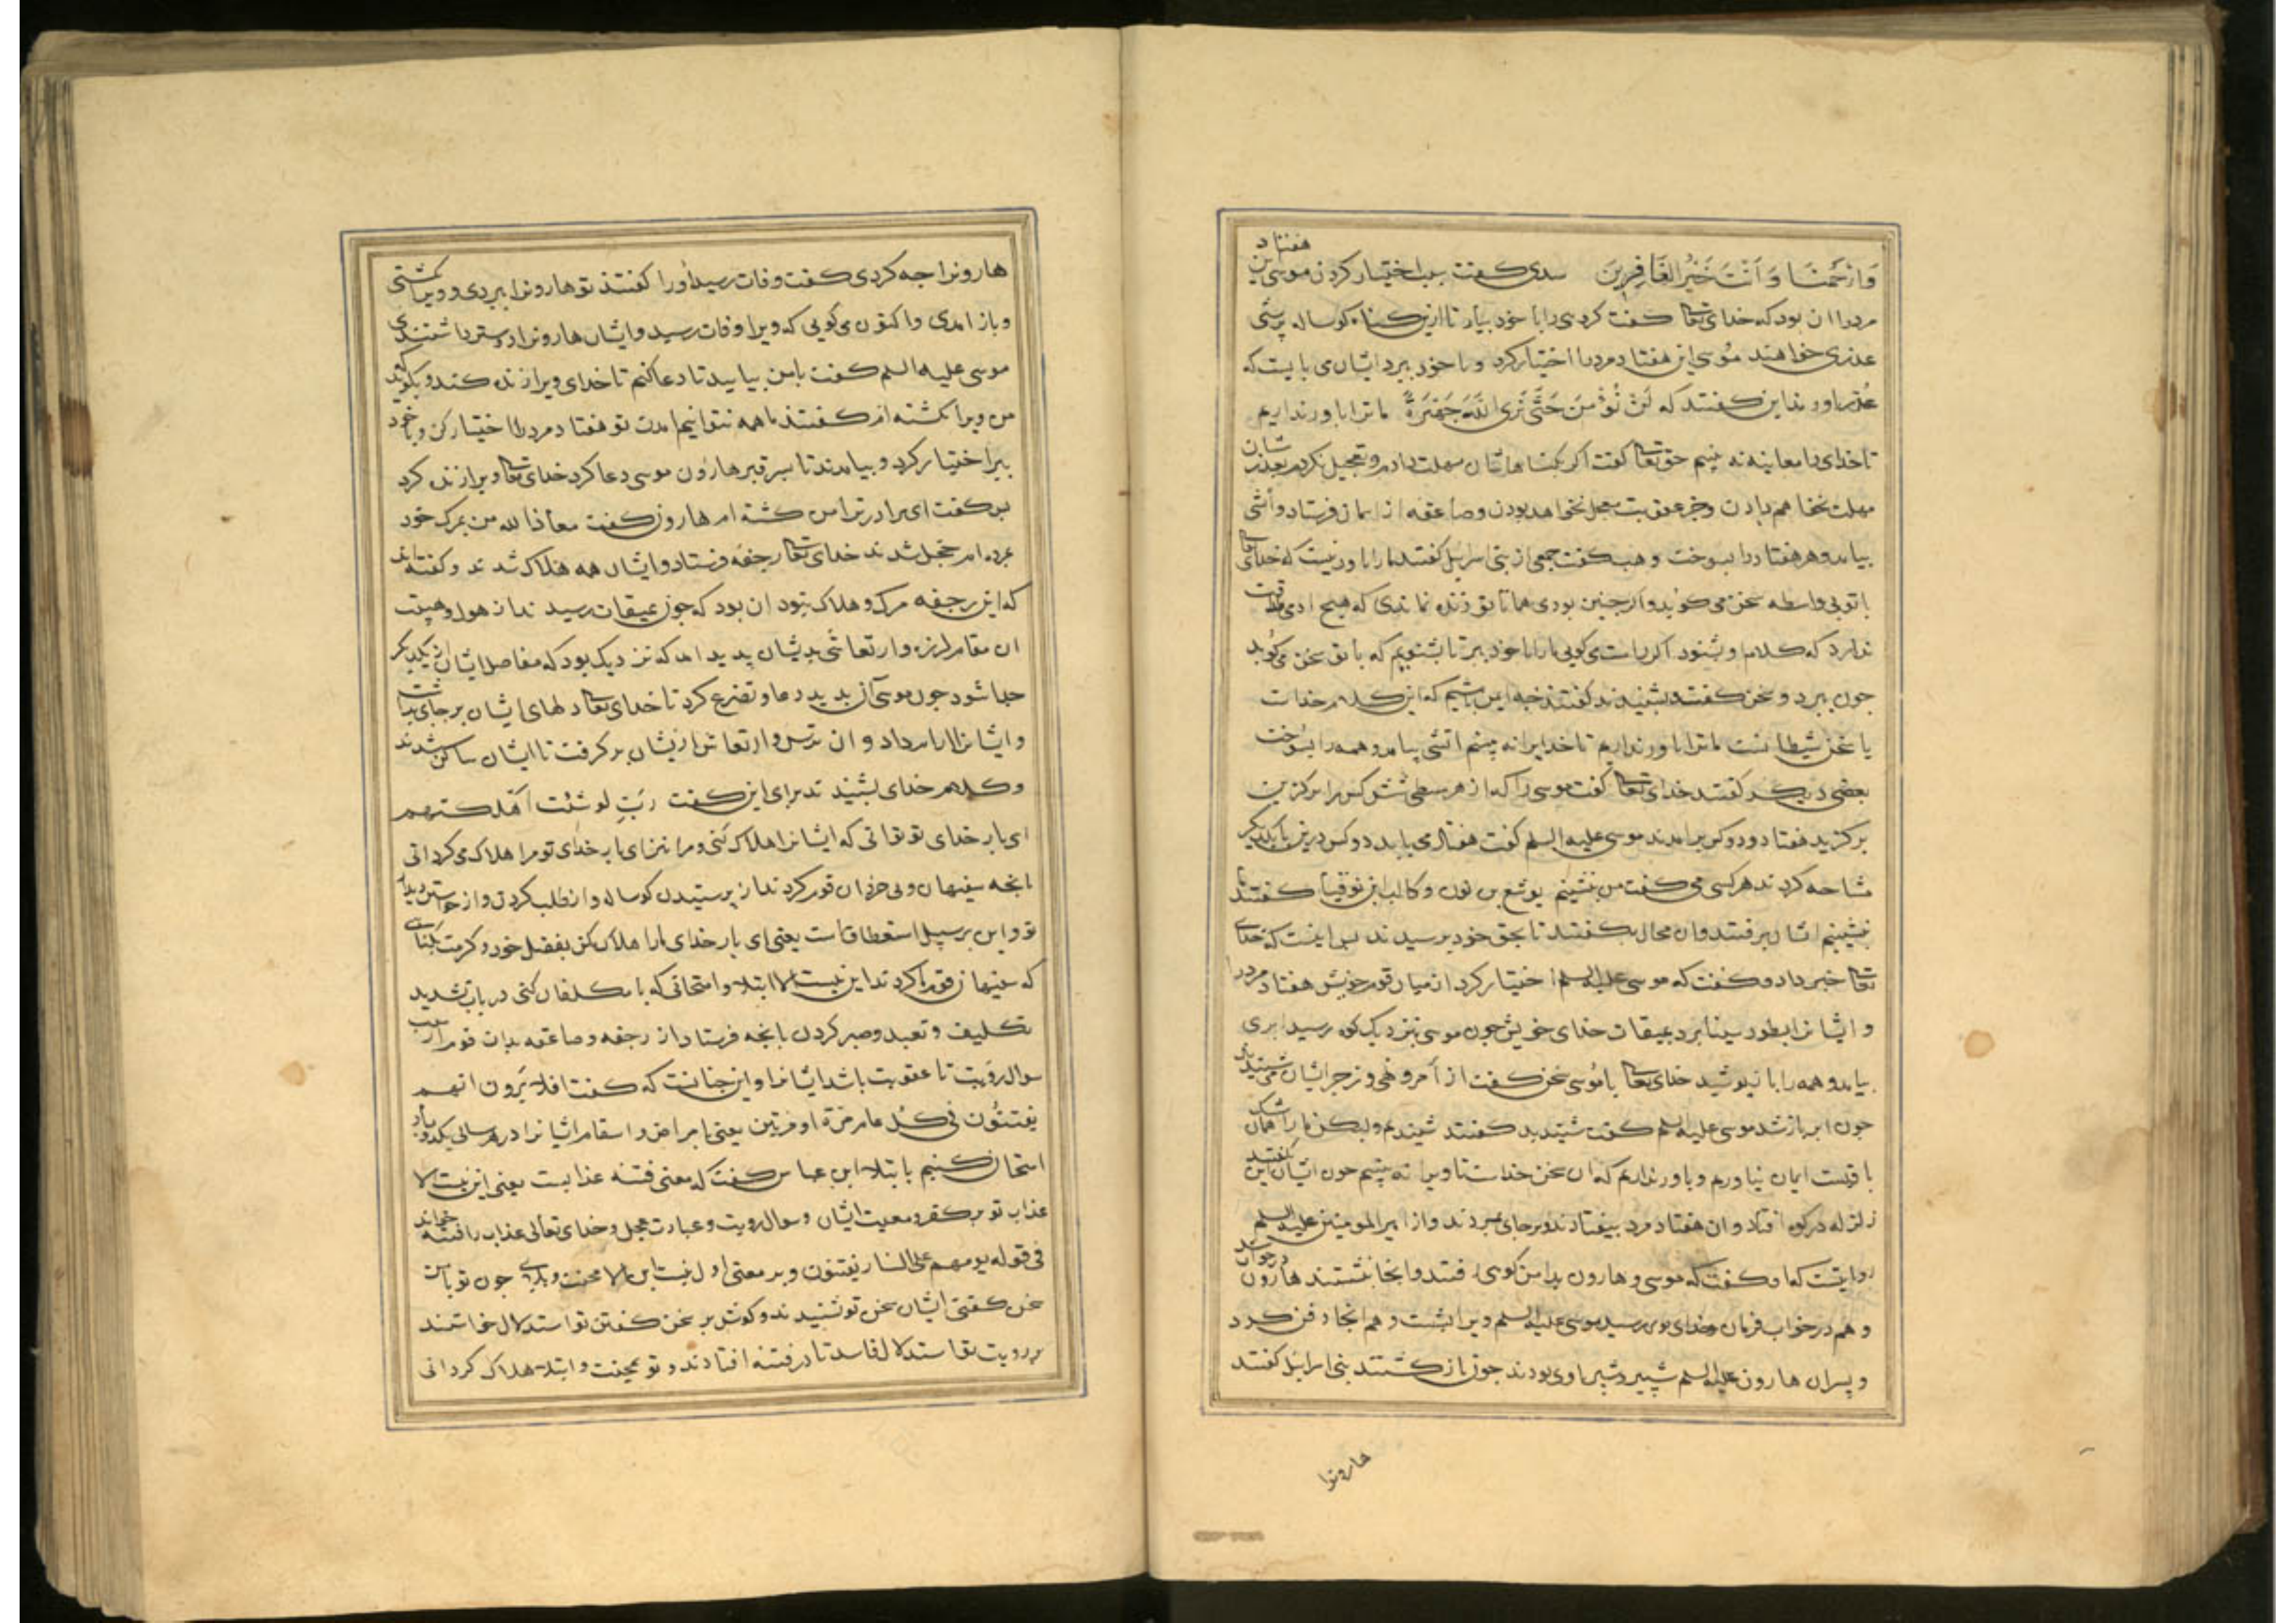 وَارْحَمْنَا وَاَنْتَ خَيْرُ الغَافِرِينَ سدی کفت سبب اختیار کردن موسی این هفتاد
مردرا ان بود که خدای تعا کفت کروهی را با خود بیار تا ازین کناه کوساله پرستی
عذری خواهند مُوسی این هفتاد مردرا اختیار کرد و با خود ببرد ایشان می بایست که
عُذر اورند این کفتند که لَنْ نُؤْمِنَ حَتَّی نَرَی اللّهَ جَهْرَةً ما ترا باور نداریم
تا خدای را معاینه نه بینیم حق تعا کفت اکر بکناهاشان مهلت دادم و تعجیل نکردم بعذرشان
مهلت نخواهم دادن وجز عقوبت معجل نخواهد بودن وصاعقه از اسمان فرستاد واتشی
بیامد وهر هفتاد را بسوخت وهب کفت جمعی از بنی اسرایل کفتند مارا باور نیست که خدای تعا
با تو بی واسطه سخن می کوید واکر چنین بودی همانا تو زنده نماندی که هیچ ادمی طاقت
ندارد که کلام او شنود اکر راست می کویی مارا با خود ببر تا بشنویم که با تو سخن می کوید
جون ببرد و سخن کفتند بشنیدند کفتند جه ایمن باشیم که این کلام خداست
یا سخن شیطانست ما ترا باور نداریم تا خدایرا نه بینیم اتشی بیامد وهمه را بسوخت
بعضی دیکر کفتند خدای تعا کفت موسی را که از هر سبطی شش کس را بر کزین
بر کزید هفتاد ودو کس برامدند موسی علیه السلم کفت هفتاد می باید دو کس درین با یکدیکر
مشاحه کردند هر کسی می کفت من ننشینم یوشع بن نون وکالب ابن یوقنا کفتند ما
بنشینیم ایشان برفتند وان محال بکفتند تا بحق خود برسیدند پس اینست که خدای
تعا خبر داد وکفت که موسی علیه السلم اختیار کرد از میان قوم خویش هفتاد مردرا
و ایشانرا بطور سینا برد بمیقات خدای خویش جون موسی بنزدیک کوه رسید ابری
بیامد وهمه را باز پوشید خدای تعا با مُوسی سخن کفت از اَمر ونهی وزجر ایشان می شنیدند
جون ابر باز شد موسی علیه السلم کفت شنیدید کفتند شنیدیم ولیکن ما را همان شک
باقیست ایمان نیاوریم وباور نداریم که ان سخن خداست تا ویرا نه بینیم جون ایشان این بکفتند
زلزله در کوه افتاد وان هفتاد مرد بیفتادند وبر جای بمردند واز امیر المومنین علیه السلم
روایتست که او کفت که موسی وهارون بدامن کوهی رفتند وانجا بنشستند هارون در خواب شد
وهم در خواب فرمان خدای بوی رسید موسی علیه السلم ویرا بشست وهم انجا دفن کرد
و پسران هارون علیه السلم شبیر وشبر با وی بودند جون باز کشتند بنی اسرایل کفتند
هارونرا
هارونرا جه کردی کفت وفات رسید اورا کفتند تو هارونرا ببردی و ویرا بکشتی
وباز امدی واکنون می کویی که ویرا وفات رسید وایشان هارونرا دوستر داشتندی
موسی علیه السلم کفت با من بیایید تا دعا کنم تا خدای ویرا زنده کند وبکوید که
من ویرا نکشته ام کفتند ما همه نتوانیم امدن تو هفتاد مردرا اختیار کن وبا خود
ببر اختیار کرد وبیامدند تا بسر قبر هارُون موسی دعا کرد خدای تعا ویرا زنده کرد
پس کفت ای برادر ترا من کشته ام هارون کفت معاذ الله من بمرک خود
مرده ام خجل شدند خدای تعا رجفه فرستاد وایشان همه هلاک شدند وکفته اند
که این رجفه مرک وهلاک نبود ان بود که جون بمیقات رسیدند از هول وهیبت
ان مقام لرزه وارتعاشی بدیشان پدید امد که نزدیک بود که مفاصل ایشان از یکدیکر
جدا شود جون موسی آن بدید دعا وتضرع کرد تا خدای تعا دلهای ایشان بر جای بداشت
وایشانرا ارام داد وان ترس وارتعاش ازیشان بر کرفت تا ایشان ساکن شدند
وکلام خدای بشنیدند برای این کفت رَبِّ لو شئت اهلکتهم
ای بار خدای تو توانی که ایشانرا هلاک کنی ومرا نیز ای بار خدای تو مرا هلاک می کردانی
بانجه سفیهان وبی خردان قوم کردند از پرستیدن کوساله واز طلب کردن واز خواستن دیدار
تو واین بر سبیل استعطافست یعنی ای بار خدای مارا هلاک مکن بفضل خود وکرمت بکناهی
که سفیهان قوم ما کردند این نیست الا ابتلا وامتحانی که با مکلفان کنی در باب تشدید
تکلیف وتعبد وصبر کردن بانجه فرستاد از رجفه وصاعقه بدان قوم از سبب
سوال رویت تا عقوبت باشد ایشانرا واین جنانست که کفت افلا یَرَون انهم
یفتنُون فی کل عام مرّة او مرتین یعنی بامراض واسقام ایشانرا در هر سالی یک دو بار
امتحان کنیم بابتلا ابن عباس کفت که معنی فتنه عذابست یعنی این نیست الا
عذاب تو بر کفر ومعصیت ایشان وسوال رویت وعبادت عجل وخدای تعالی عذاب را فتنه خواند
فی قوله یوم هم علی النار یفتنون وبر معنی اول نیست این الا محنت وبلای جون تو با من
سخن کفتی ایشان سخن تو شنیدند وکوش بر سخن کفتن تو استدلال خواستند
بر رویت تو استدلال فاسد تا در فتنه افتادند وتو بمحنت وابتلا هلاک کردانی